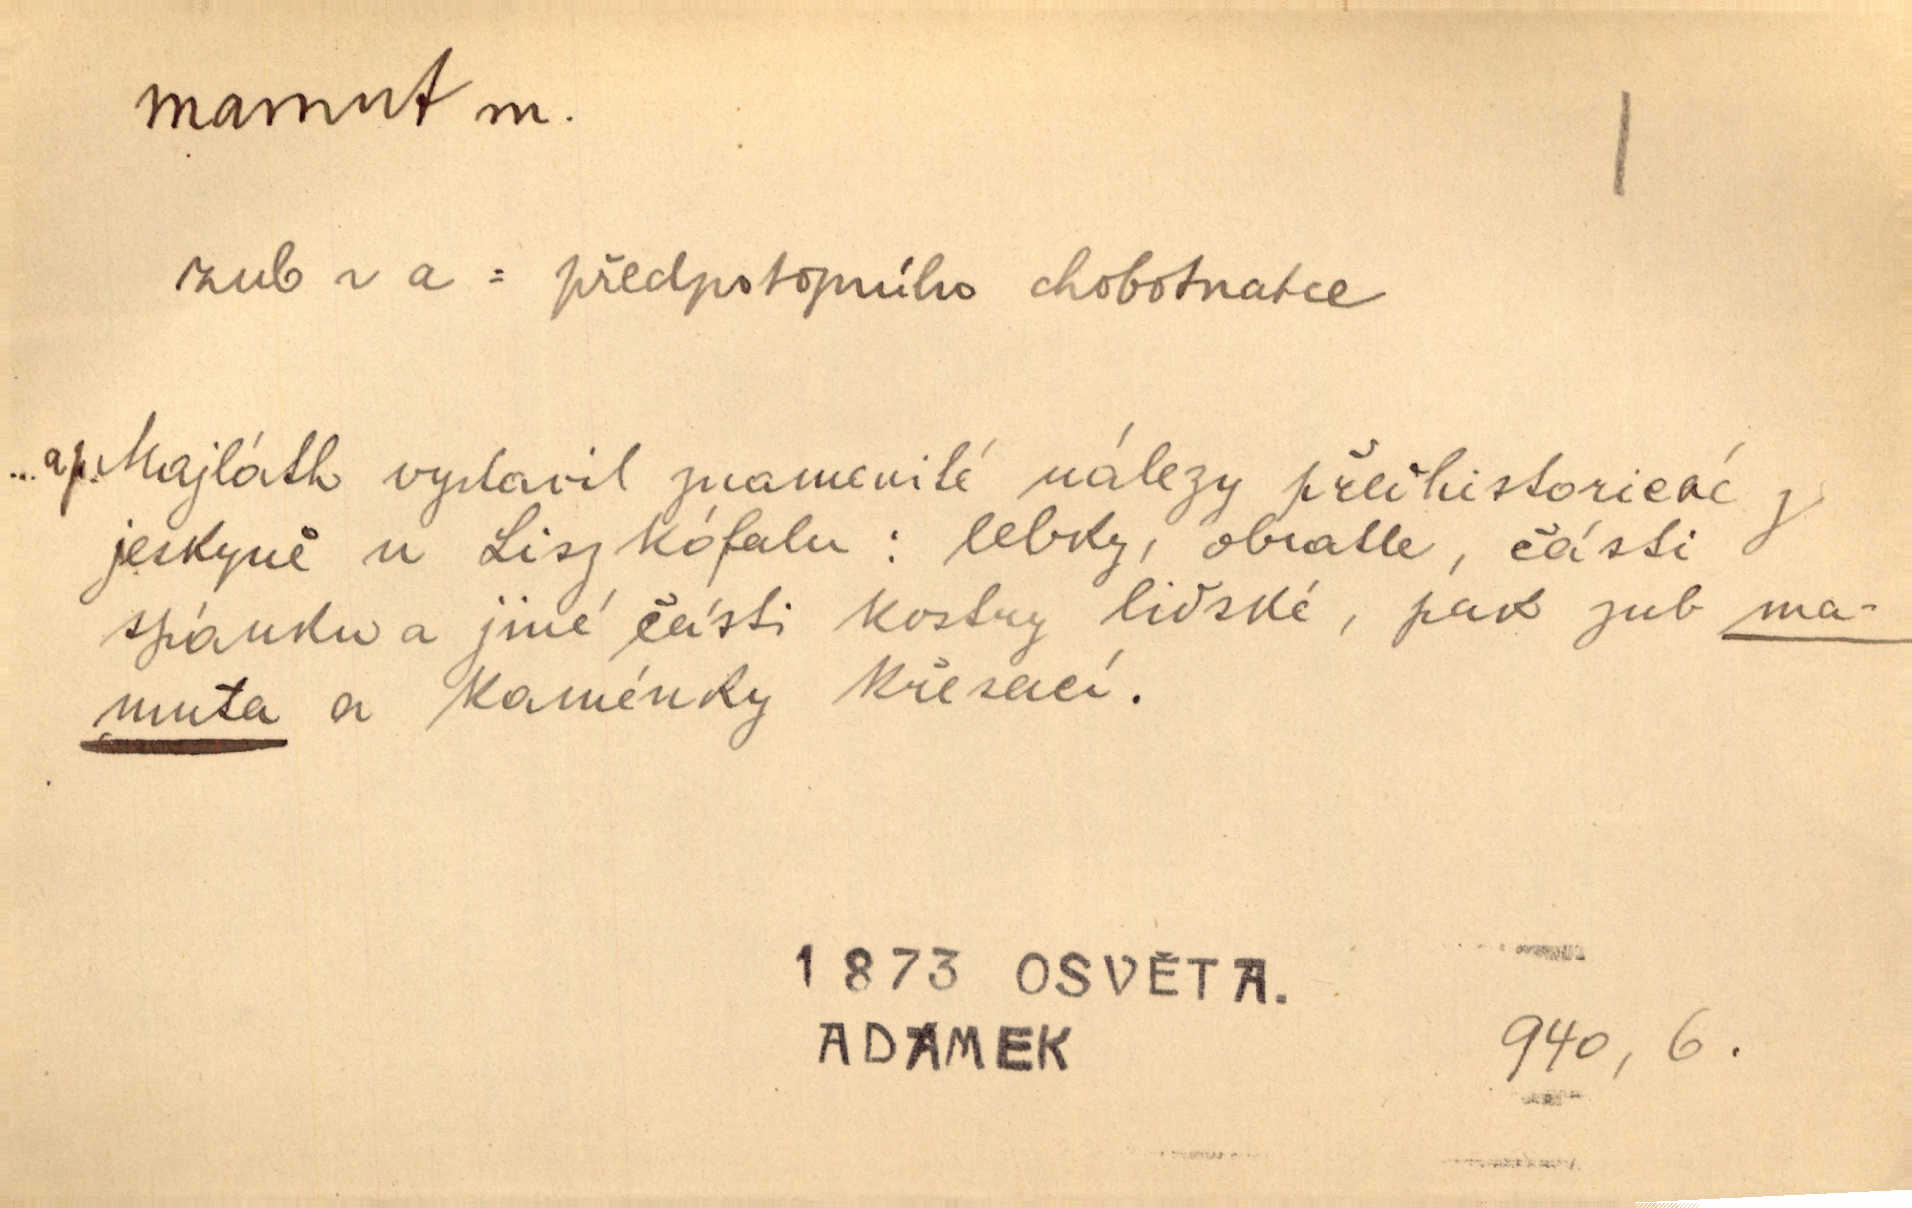 mamut m.
zub ~ a = předpotopního chobotnatce
... a p. Majláth vystavil znamenité nálezy předhistorické z
jeskyně u Liszkófalu : lebky, obratle, části
spánku a jiné části kostry lidské, pak zub ma-
muta a kaménky křesací.
1873 OSVĚTA.
ADÁMEK
940, 6.